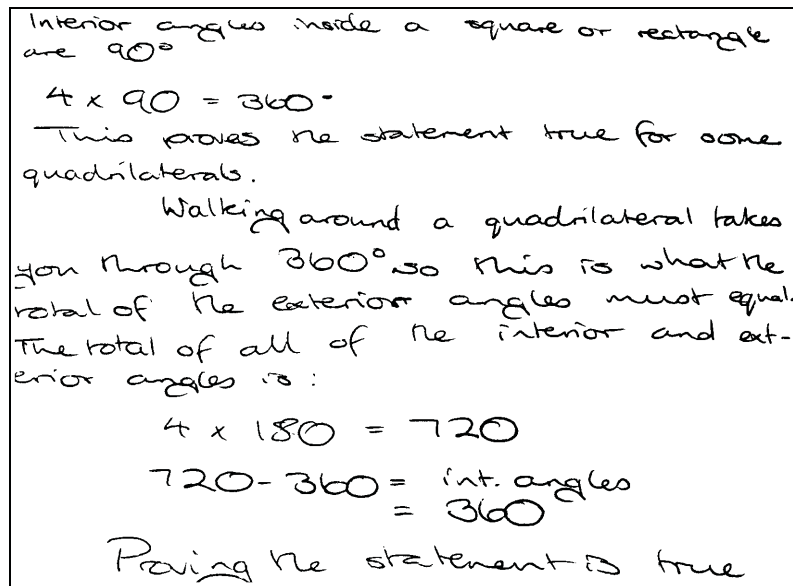 Interior angles inside a square or rectangle
are 90°
4 x 90 = 360°
This proves the statement true for some
quadrilaterals.
Walking around a quadrilateral takes
you through 360° so this is what the
total of the exterior angles must equal.
The total of all of the interior and ext-
erior angles is:
4 x 180 = 720
720 - 360 = int. angles
= 360
Proving the statement is true